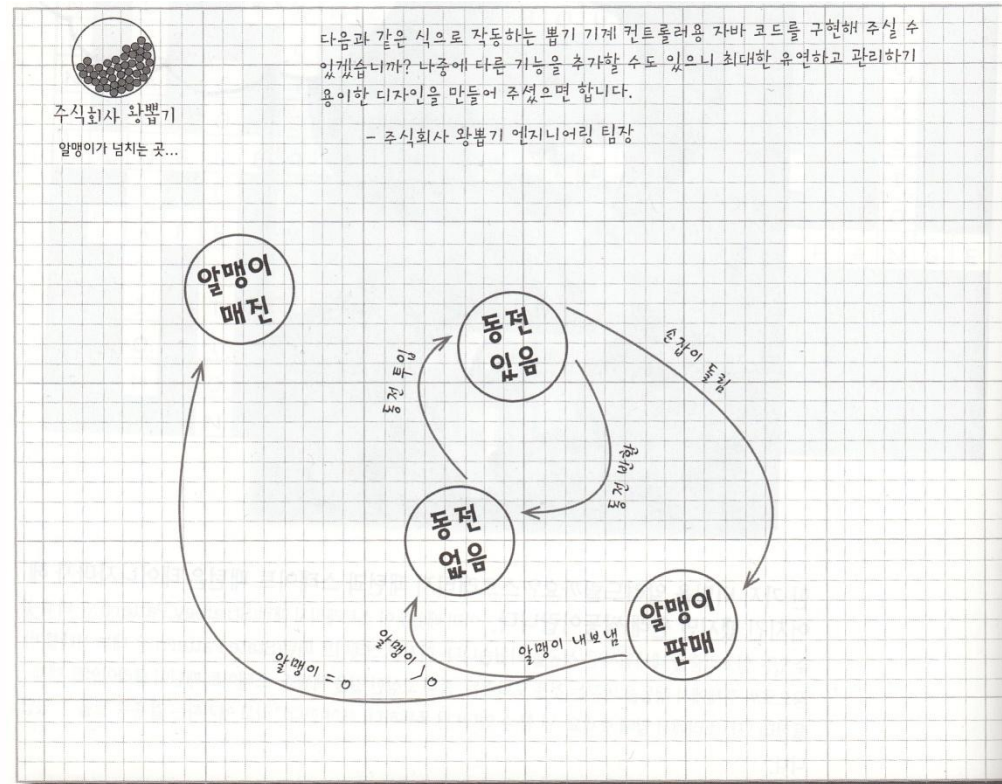 주식회사 왕뽑기
알맹이가 넘치는 곳...
다음과 같은 식으로 작동하는 뽑기 기계 컨트롤러용 자바 코드를 구현해 주실 수
있겠습니까? 나중에 다른 기능을 추가할 수도 있으니 최대한 유연하고 관리하기
용이한 디자인을 만들어 주셨으면 합니다.
- 주식회사 왕뽑기 엔지니어링 팀장
알맹이
매진
동전
있음
동전 투입
손잡이 돌림
동전 반환
동전
없음
알맹이
판매
알맹이 내보냄
알맹이 > 0
알맹이 = 0